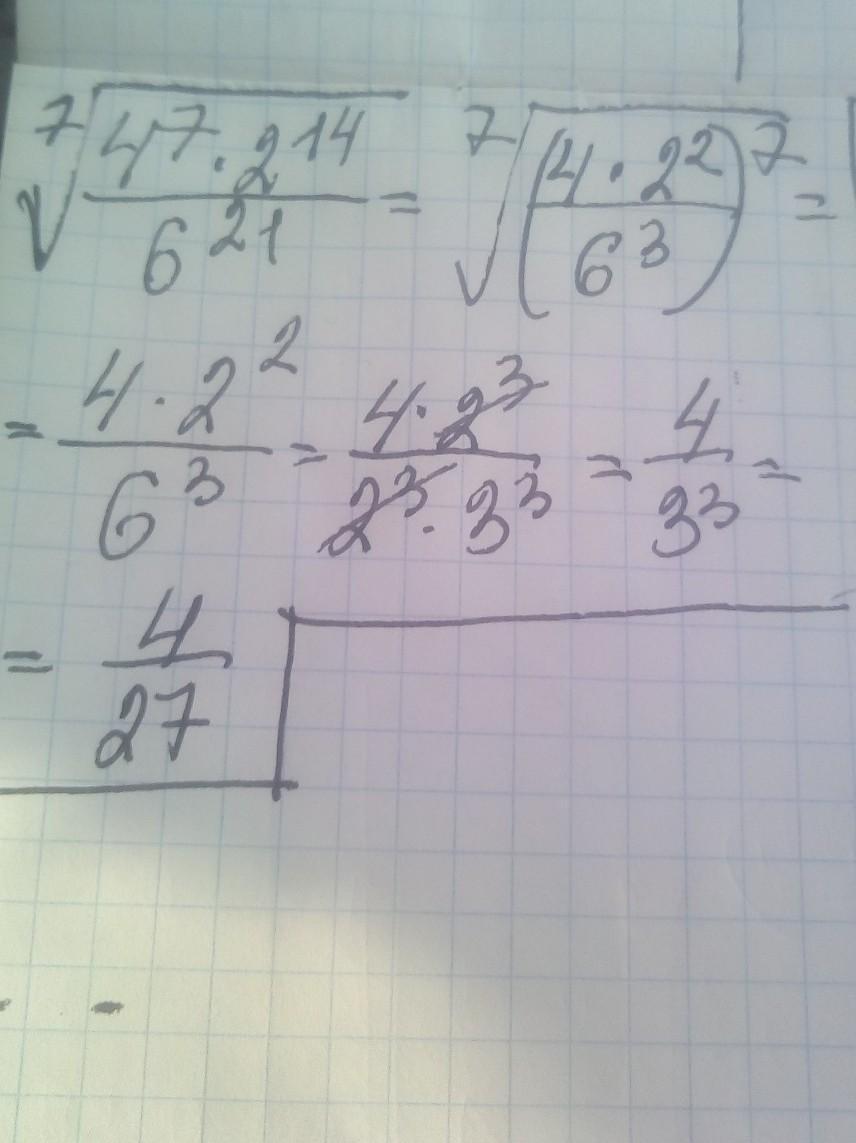 \sqrt[7]{\frac{4^7 \cdot 2^{14}}{6^{21}}} = \sqrt[7]{\left(\frac{4 \cdot 2^2}{6^3}\right)^7} =
= \frac{4 \cdot 2^2}{6^3} = \frac{4 \cdot 2^3}{2^3 \cdot 3^3} = \frac{4}{3^3} =
= \frac{4}{27}